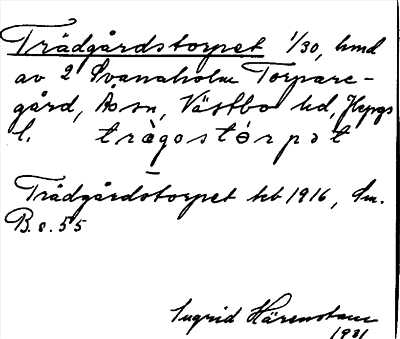 Trädgårdstorpet 1/30, hmd
av 2 Svanaholm Torpare-
gård, Ås sn, Västbo hd, Jkpgs
l. trägostórpət
Trädgårdstorpet hb 1916, Sm.
B. s. 55
Ingrid Härenstam
1931